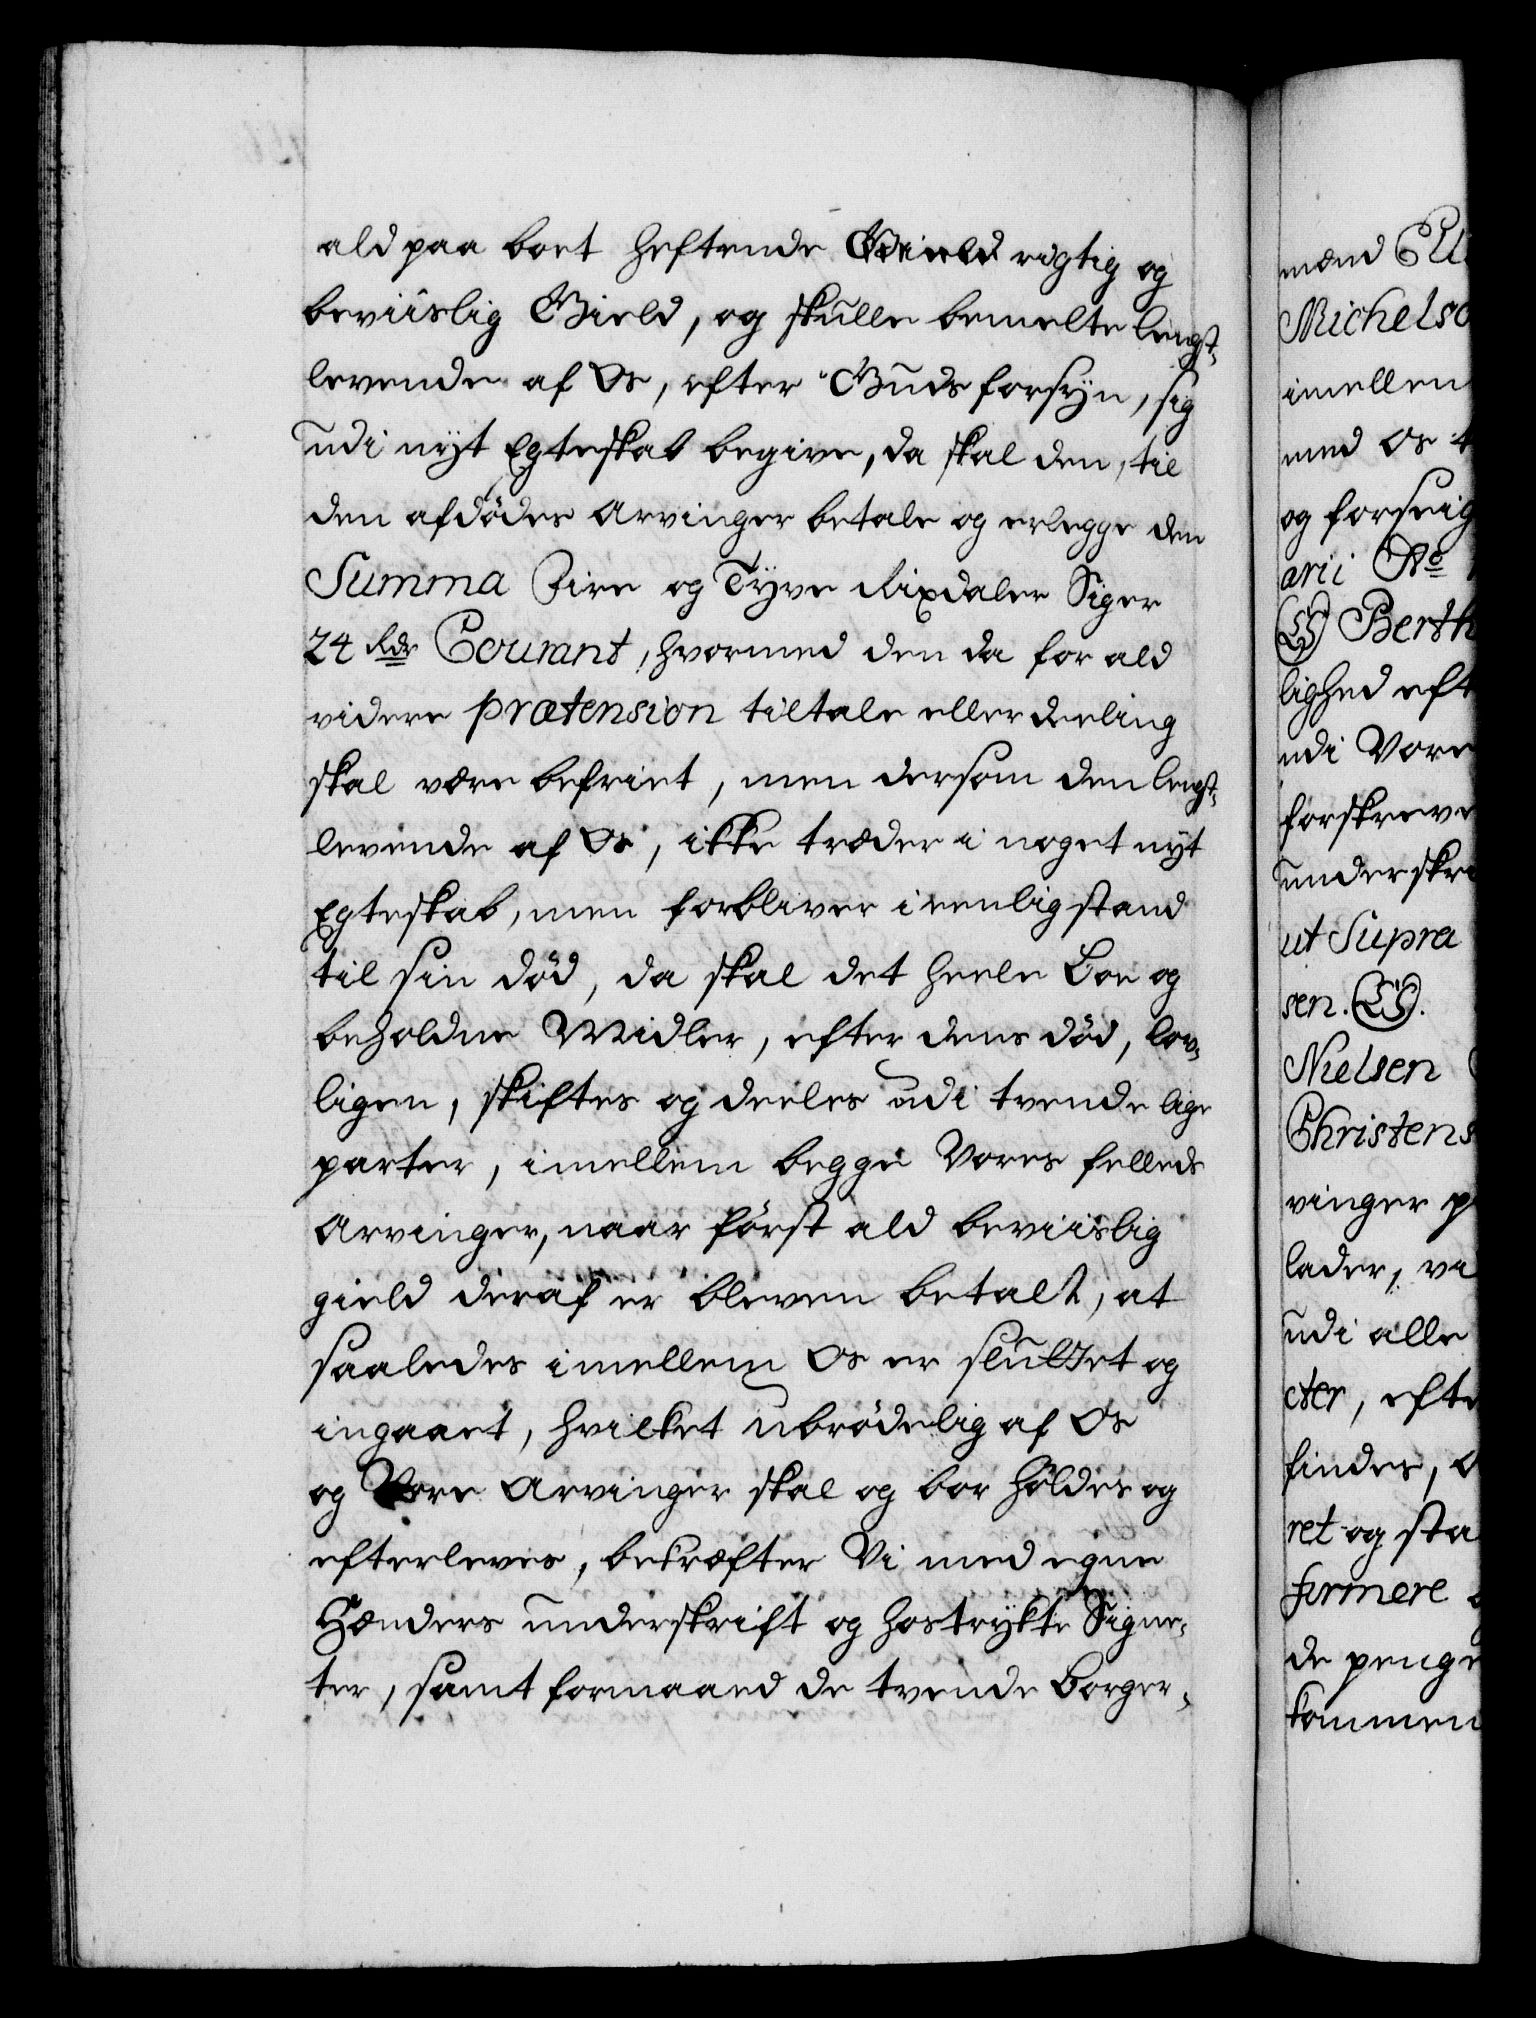 ald paa boet heftende Gield rigtig og
beviislig Gield, og skulle bemelte lengst-
levende af Os, efter Guds forsyn, sig
udi nyt Egteskab begive, da skal den, til
den afdødes Arvinger betale og erlegge den
Summa Fire og Tyve Rixdaler Siger
24 Rdr Courant, hvormed den da for ald
videre prætension tiltale eller deeling
skal være befriet, men dersom den lengst-
levende af Os, ikke træder i noget nyt
Egteskab, men forbliver i eenlig stand
til sin død, da skal det heele Boe og
beholdne Midler, efter dens død, lov-
ligen, skiftes og deeles udi tvende lige
parter, imellem begge Vores felleds
Arvinger, naar først ald beviislig
gield deraf er bleven betalt, at
saaledes imellem Os er sluttet og
ingaaet, hvilket ubrødelig af Os
og Vore Arvinger skal og bør holdes og
efterleves, bekræfter Vi med egne
Hænders underskrift og hostrykte Signe-
ter, samt formaaed de tvende Borger-
mænd
Michelso
imellem
med Os t
og forseig
arii No
LS Berth
lighed eft
udi Vore
forskreve
underskre
ut Supra
sen. LS.
Nielsen
Christens
vinger p
lader, va
udi alle
cter, efte
findes,
ret og sta
firmere
de penge
kommen